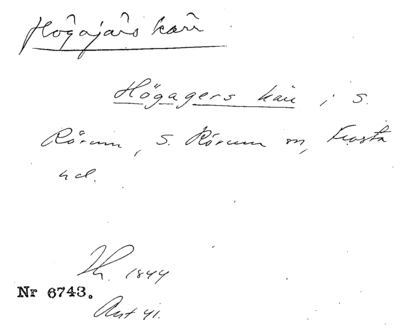 Högajårs kärr
Högagers kärr i S.
Rörum, S. Rörum sn, Frosta
hd.
Th. 1844
Nr 6743.
Ant 41.